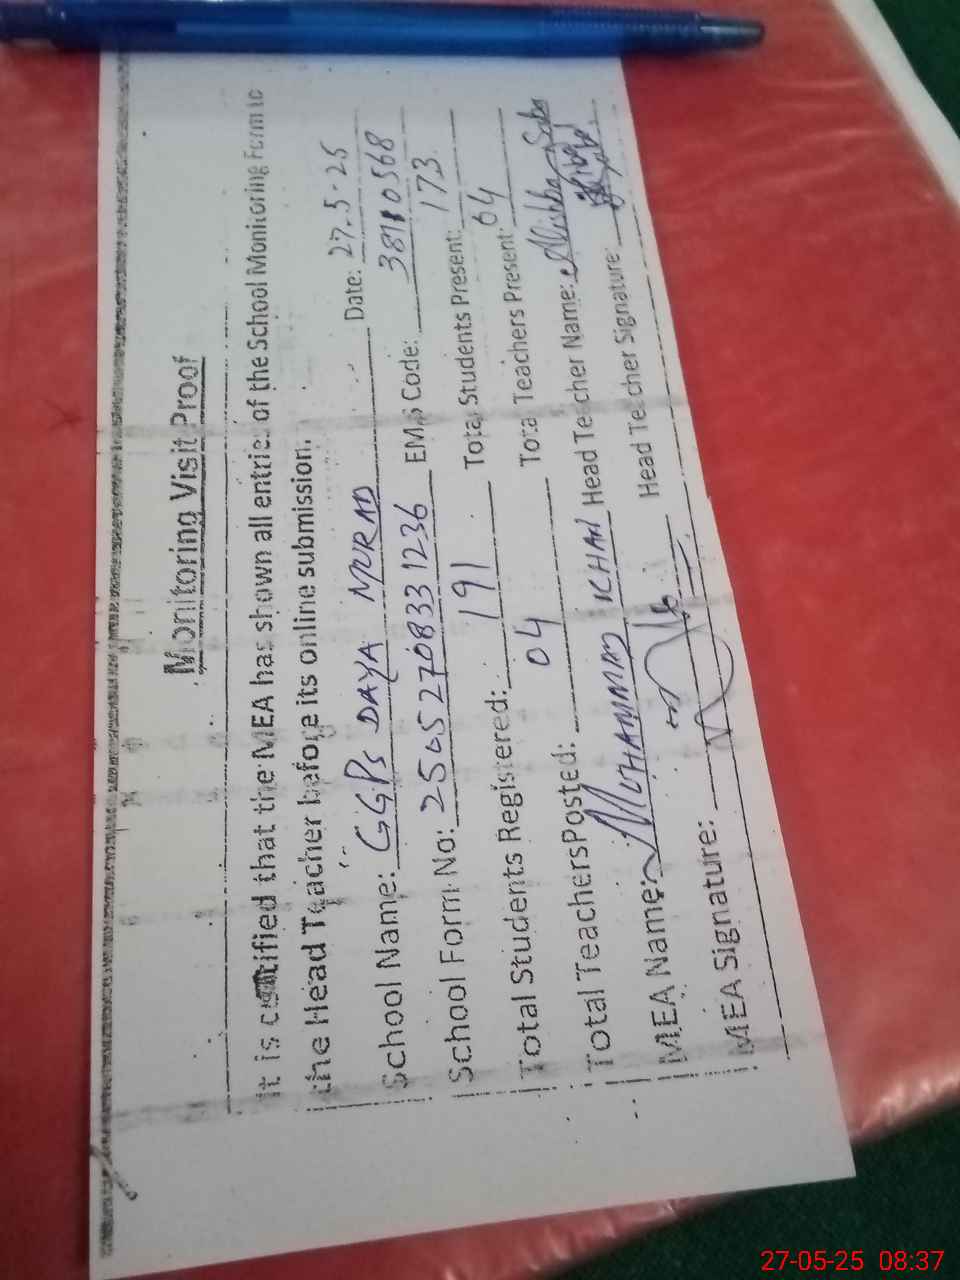 Monitoring Visit Proof
It is certified that the MEA has shown all entries of the School Monitoring Form to
the Head Teacher before its online submission.
School Name: GGPS DAYA MURAD Date: 27-5-25
School Form No: 25052708331236 EMIS Code: 38110568
Total Students Registered: 191 Total Students Present: 173
Total Teachers Posted: 04 Total Teachers Present: 04
MEA Name: MUHAMMAD KHAN Head Teacher Name: Misbha Saba
MEA Signature: Head Teacher Signature:
27-05-25 08:37